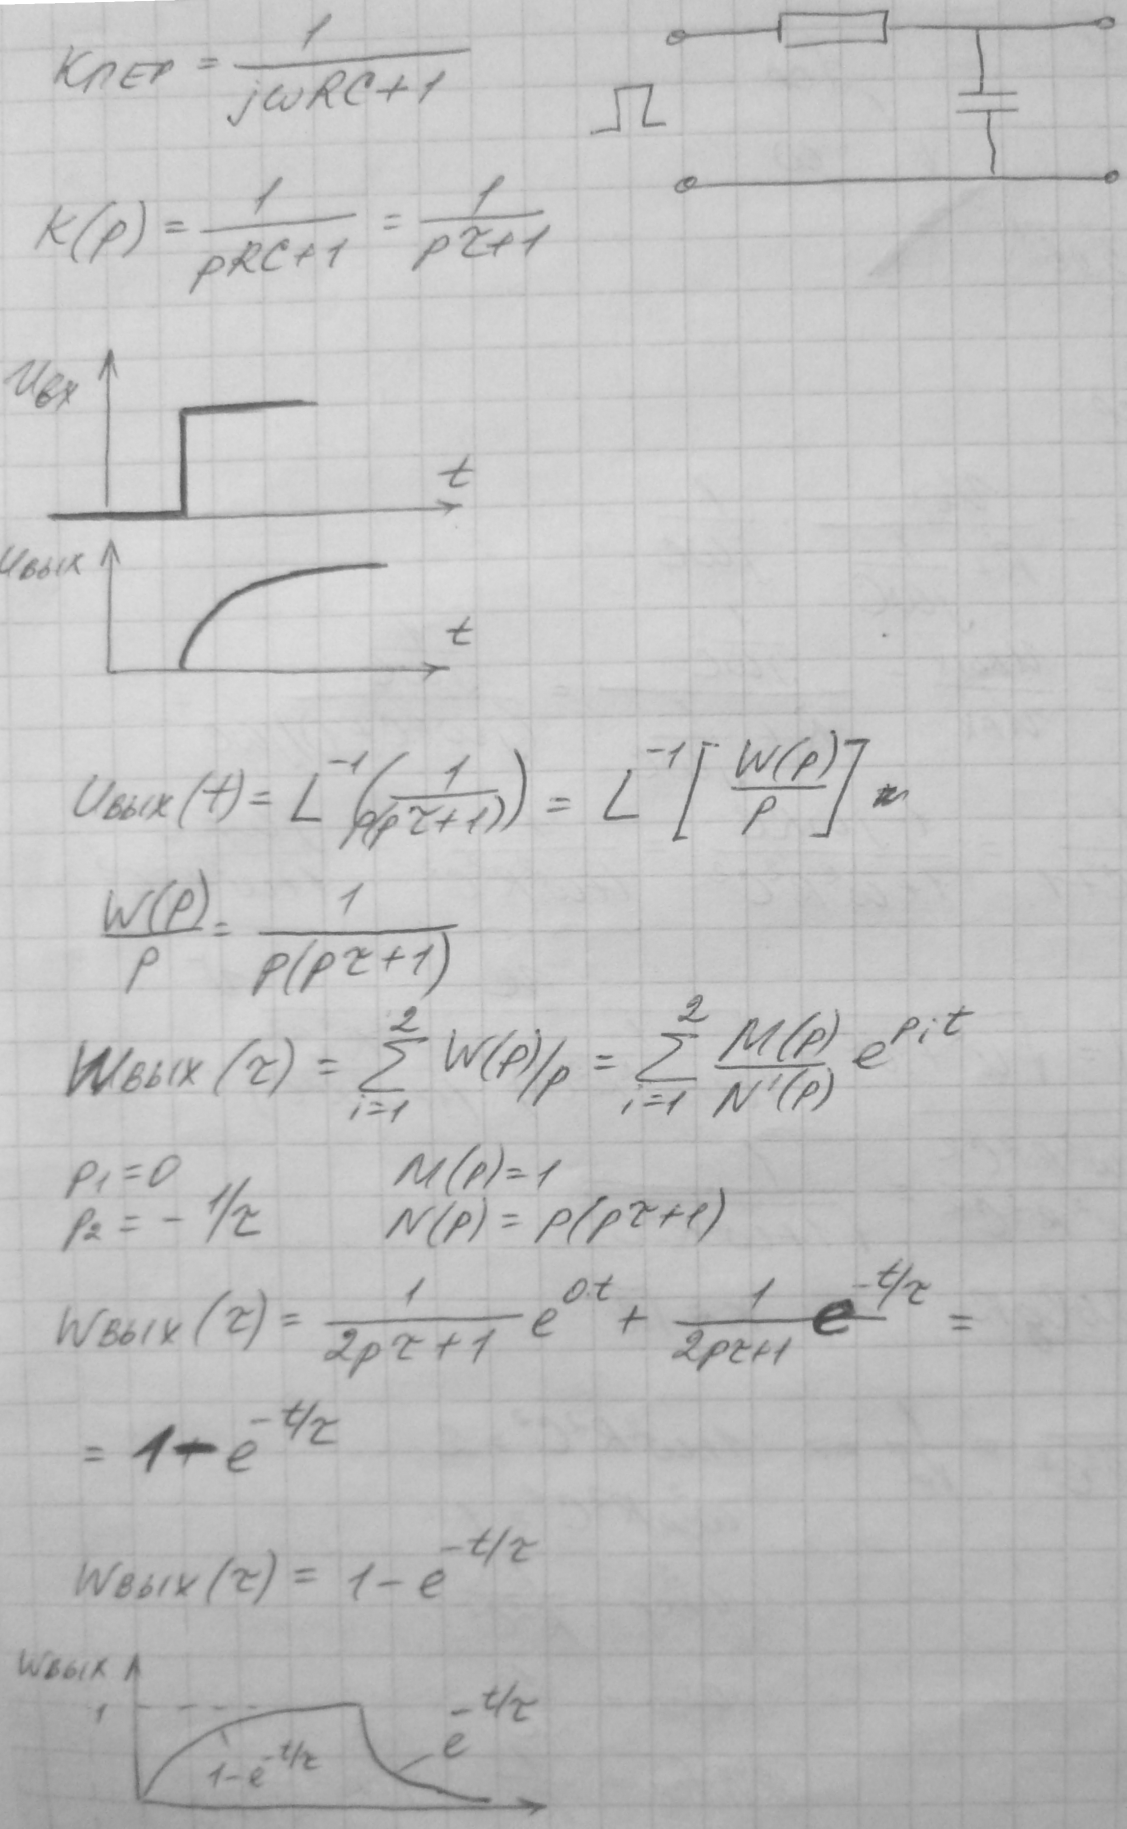 Kпер = 1/(jωRC+1)
K(p) = 1/(pRC+1) = 1/(pτ+1)
Uвх
t
Uвых
t
Uвых(t) = L⁻¹(1/(p(pτ+1))) = L⁻¹[W(p)/p]
W(p)/p = 1/(p(pτ+1))
Wвых(τ) = ∑_{i=1}^{2} W(p)/p = ∑_{i=1}^{2} M(p)/N'(p) e^{p_i t}
p₁=0 M(p)=1
p₂ = -1/τ N(p) = p(pτ+1)
Wвых(τ) = 1/(2pτ+1) e^{0·t} + 1/(2pτ+1) e^{-t/τ} =
= 1 - e^{-t/τ}
Wвых(τ) = 1 - e^{-t/τ}
Wвых
1
1-e^{-t/τ}
e^{-t/τ}